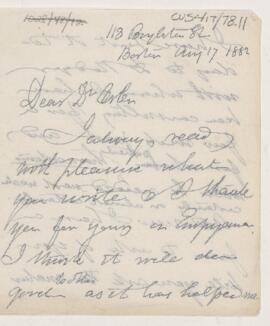 CUS417/78.11
113 Boylston St
Boston Aug 17 1882
Dear Dr Osler
I always read
with pleasure what
you write & I thank
you for yours on Empyema.
I think it will do
good to others
as it has helped me